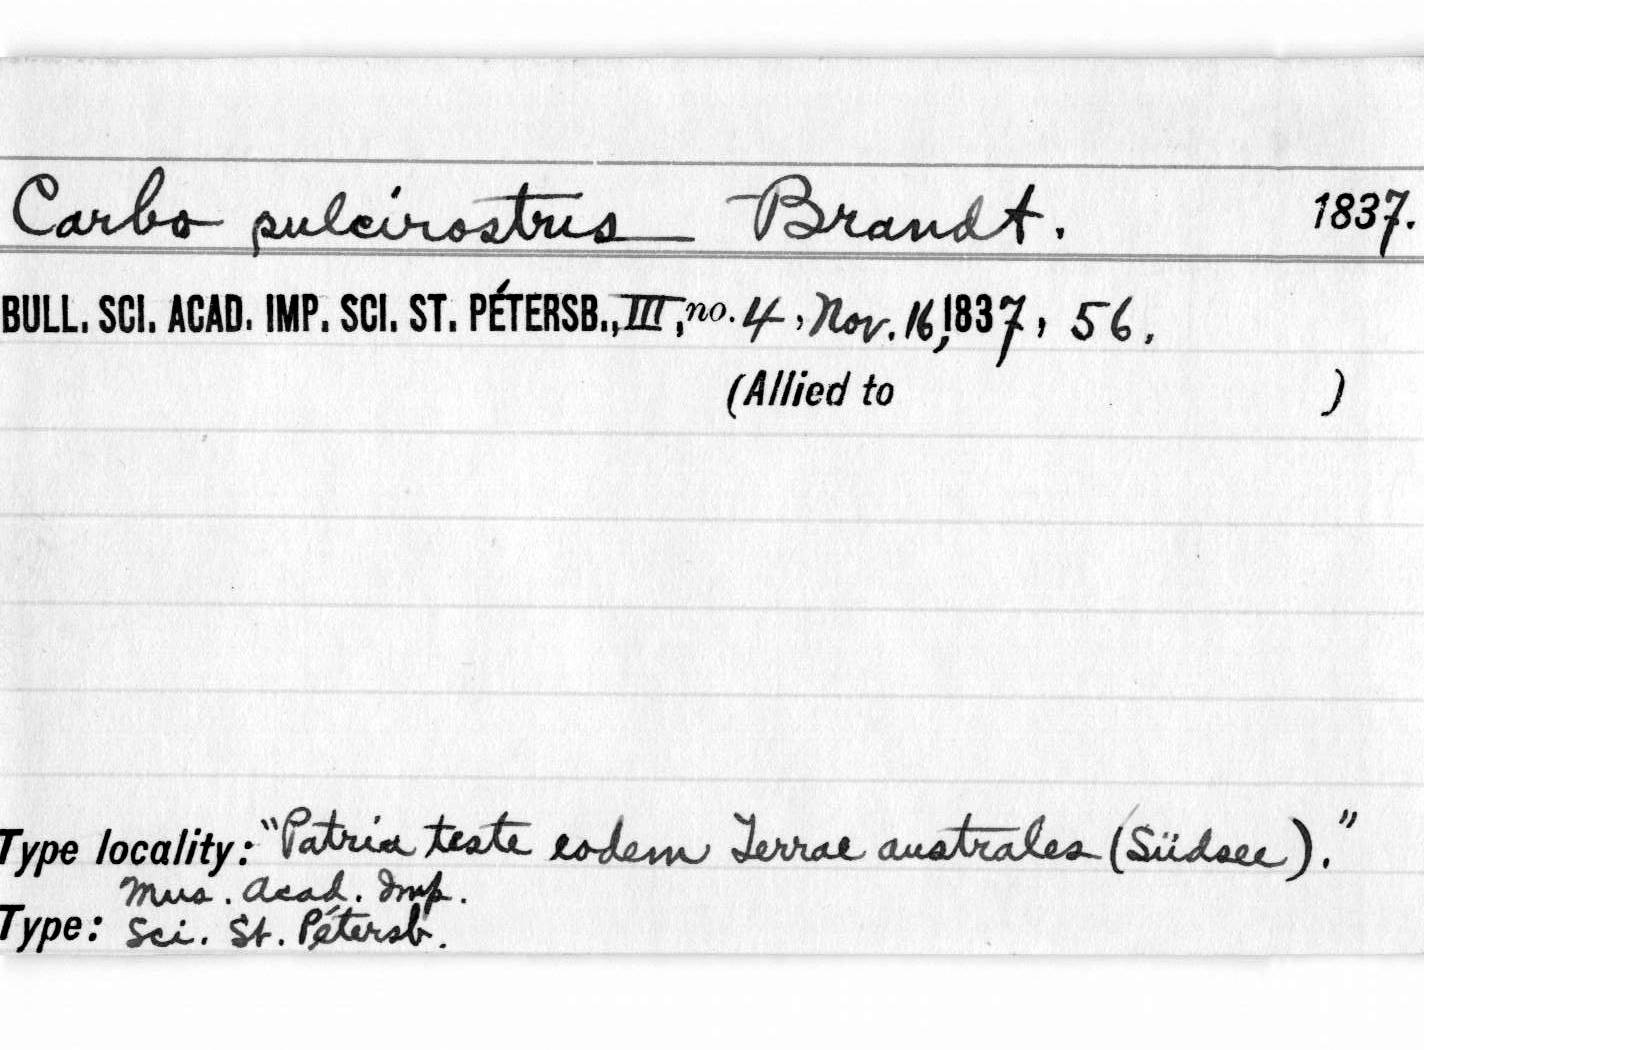 Carbo pulcirostris Brandt. 1837.
BULL. SCI. ACAD. IMP. SCI. ST. PÉTERSB., III, no. 4, Nov. 16, 1837, 56.
(Allied to )
Type locality: "Patria teste eodem Terrae australes (Südsee)."
Mus. Acad. Imp.
Type: Sci. St. Pétersb.